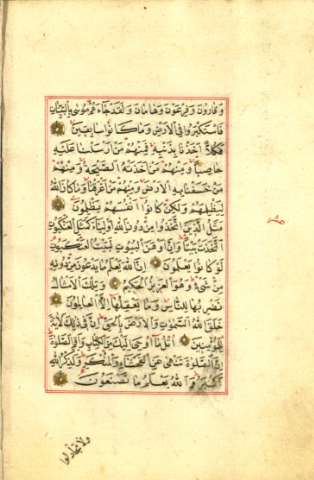 وقارون وفرعون وهامان ولقد جاءهم موسى بالبينات
فاستكبروا في الارض وما كانوا سابقين
فكلا اخذنا بذنبه فمنهم من ارسلنا عليه
حاصبا ومنهم من اخذته الصيحة ومنهم
من خسفنا به الارض ومنهم من اغرقنا وما كان الله
ليظلمهم ولكن كانوا انفسهم يظلمون
مثل الذين اتخذوا من دون الله اولياء كمثل العنكبوت
اتخذت بيتا وان اوهن البيوت لبيت العنكبوت
لو كانوا يعلمون ان الله يعلم ما يدعون من دونه
من شيء وهو العزيز الحكيم وتلك الامثال
نضربها للناس وما يعقلها الا العالمون
خلق الله السموات والارض بالحق ان في ذلك لاية
للمؤمنين اتل ما اوحي اليك من الكتاب واقم الصلوة
ان الصلوة تنهى عن الفحشاء والمنكر ولذكر الله
اكبر والله يعلم ما تصنعون
ولا تجادلوا